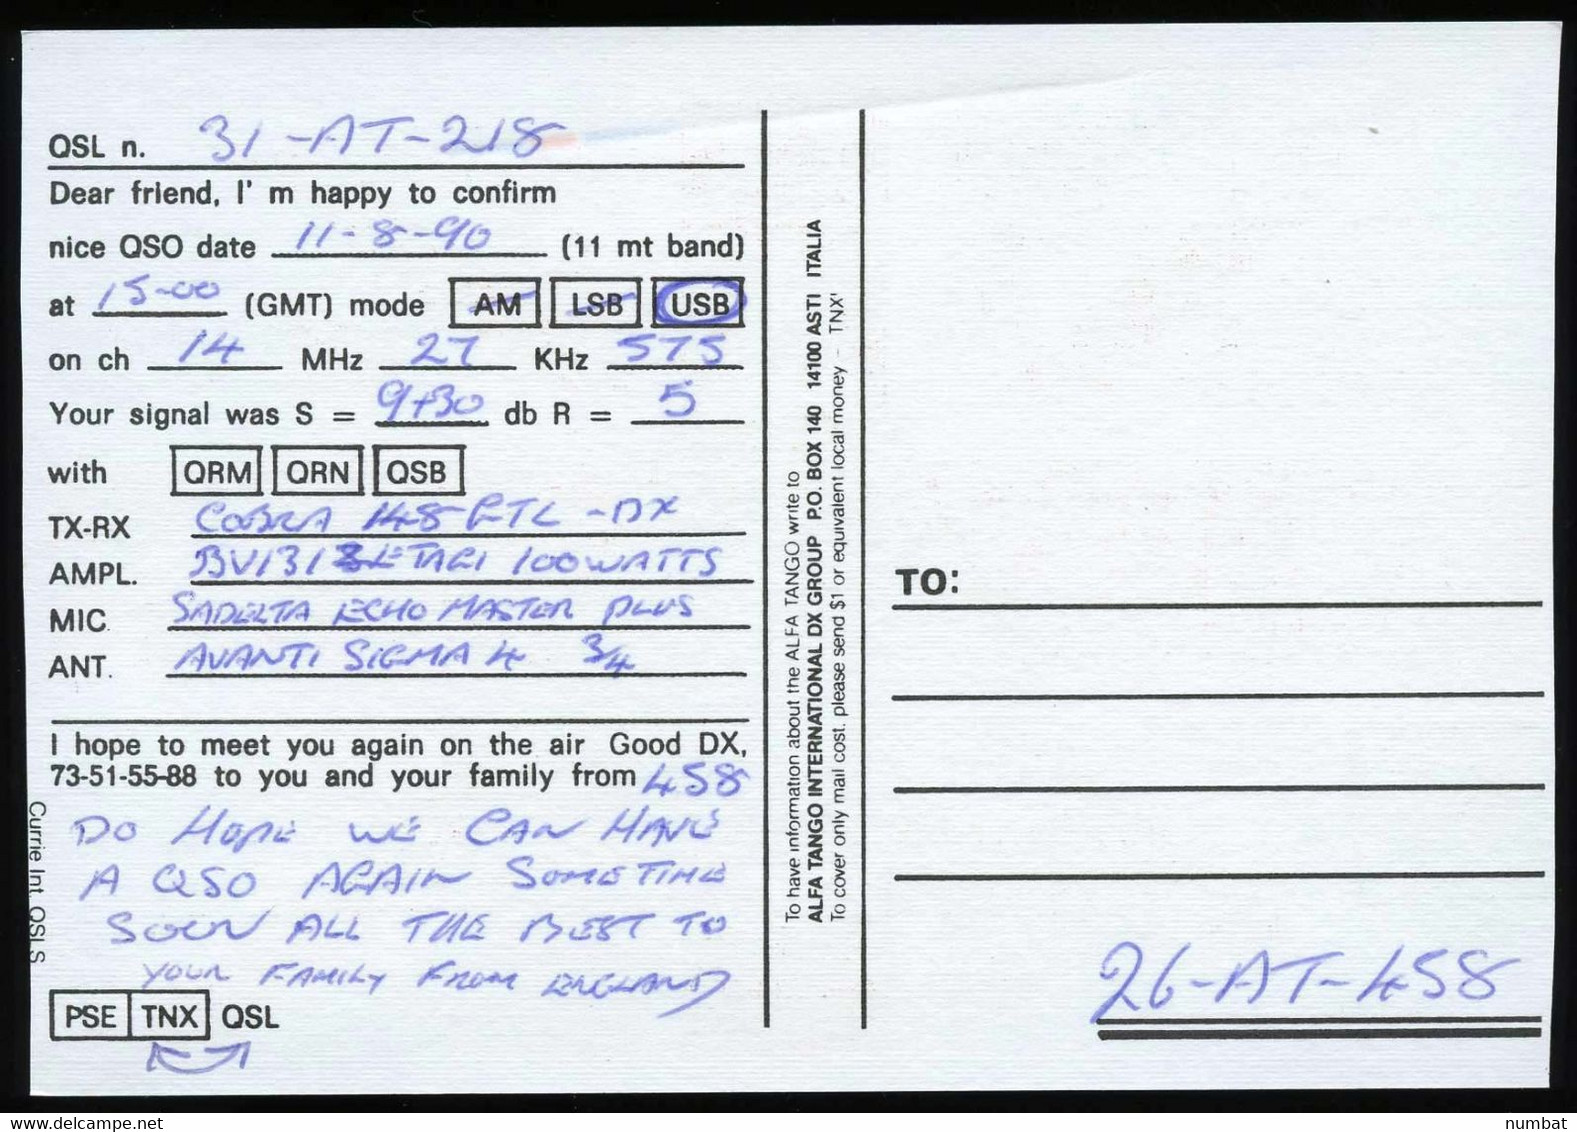 QSL n. 31-AT-218
Dear friend, I' m happy to confirm
nice QSO date 11-8-90 (11 mt band)
at 15-00 (GMT) mode AM LSB USB
on ch 14 MHz 27 KHz 575
Your signal was S = 9+30 db R = 5
with QRM QRN QSB
TX-RX COBRA 148 GTL -DX
AMPL. BV131 100 WATTS
MIC. SADELTA ECHO MASTER PLUS
ANT. AVANTI SIGMA 4 3/4
I hope to meet you again on the air Good DX,
73-51-55-88 to you and your family from 458
DO HOPE WE CAN HAVE
A QSO AGAIN SOMETIME
SOON ALL THE BEST TO
YOUR FAMILY FROM ENGLAND
PSE TNX QSL
Currie Int. QSLS
To have information about the ALFA TANGO write to
ALFA TANGO INTERNATIONAL DX GROUP P.O. BOX 140 14100 ASTI ITALIA
To cover only mail cost. please send $1 or equivalent local money - TNX'
TO:
26-AT-458
www.delcampe.net
numbat